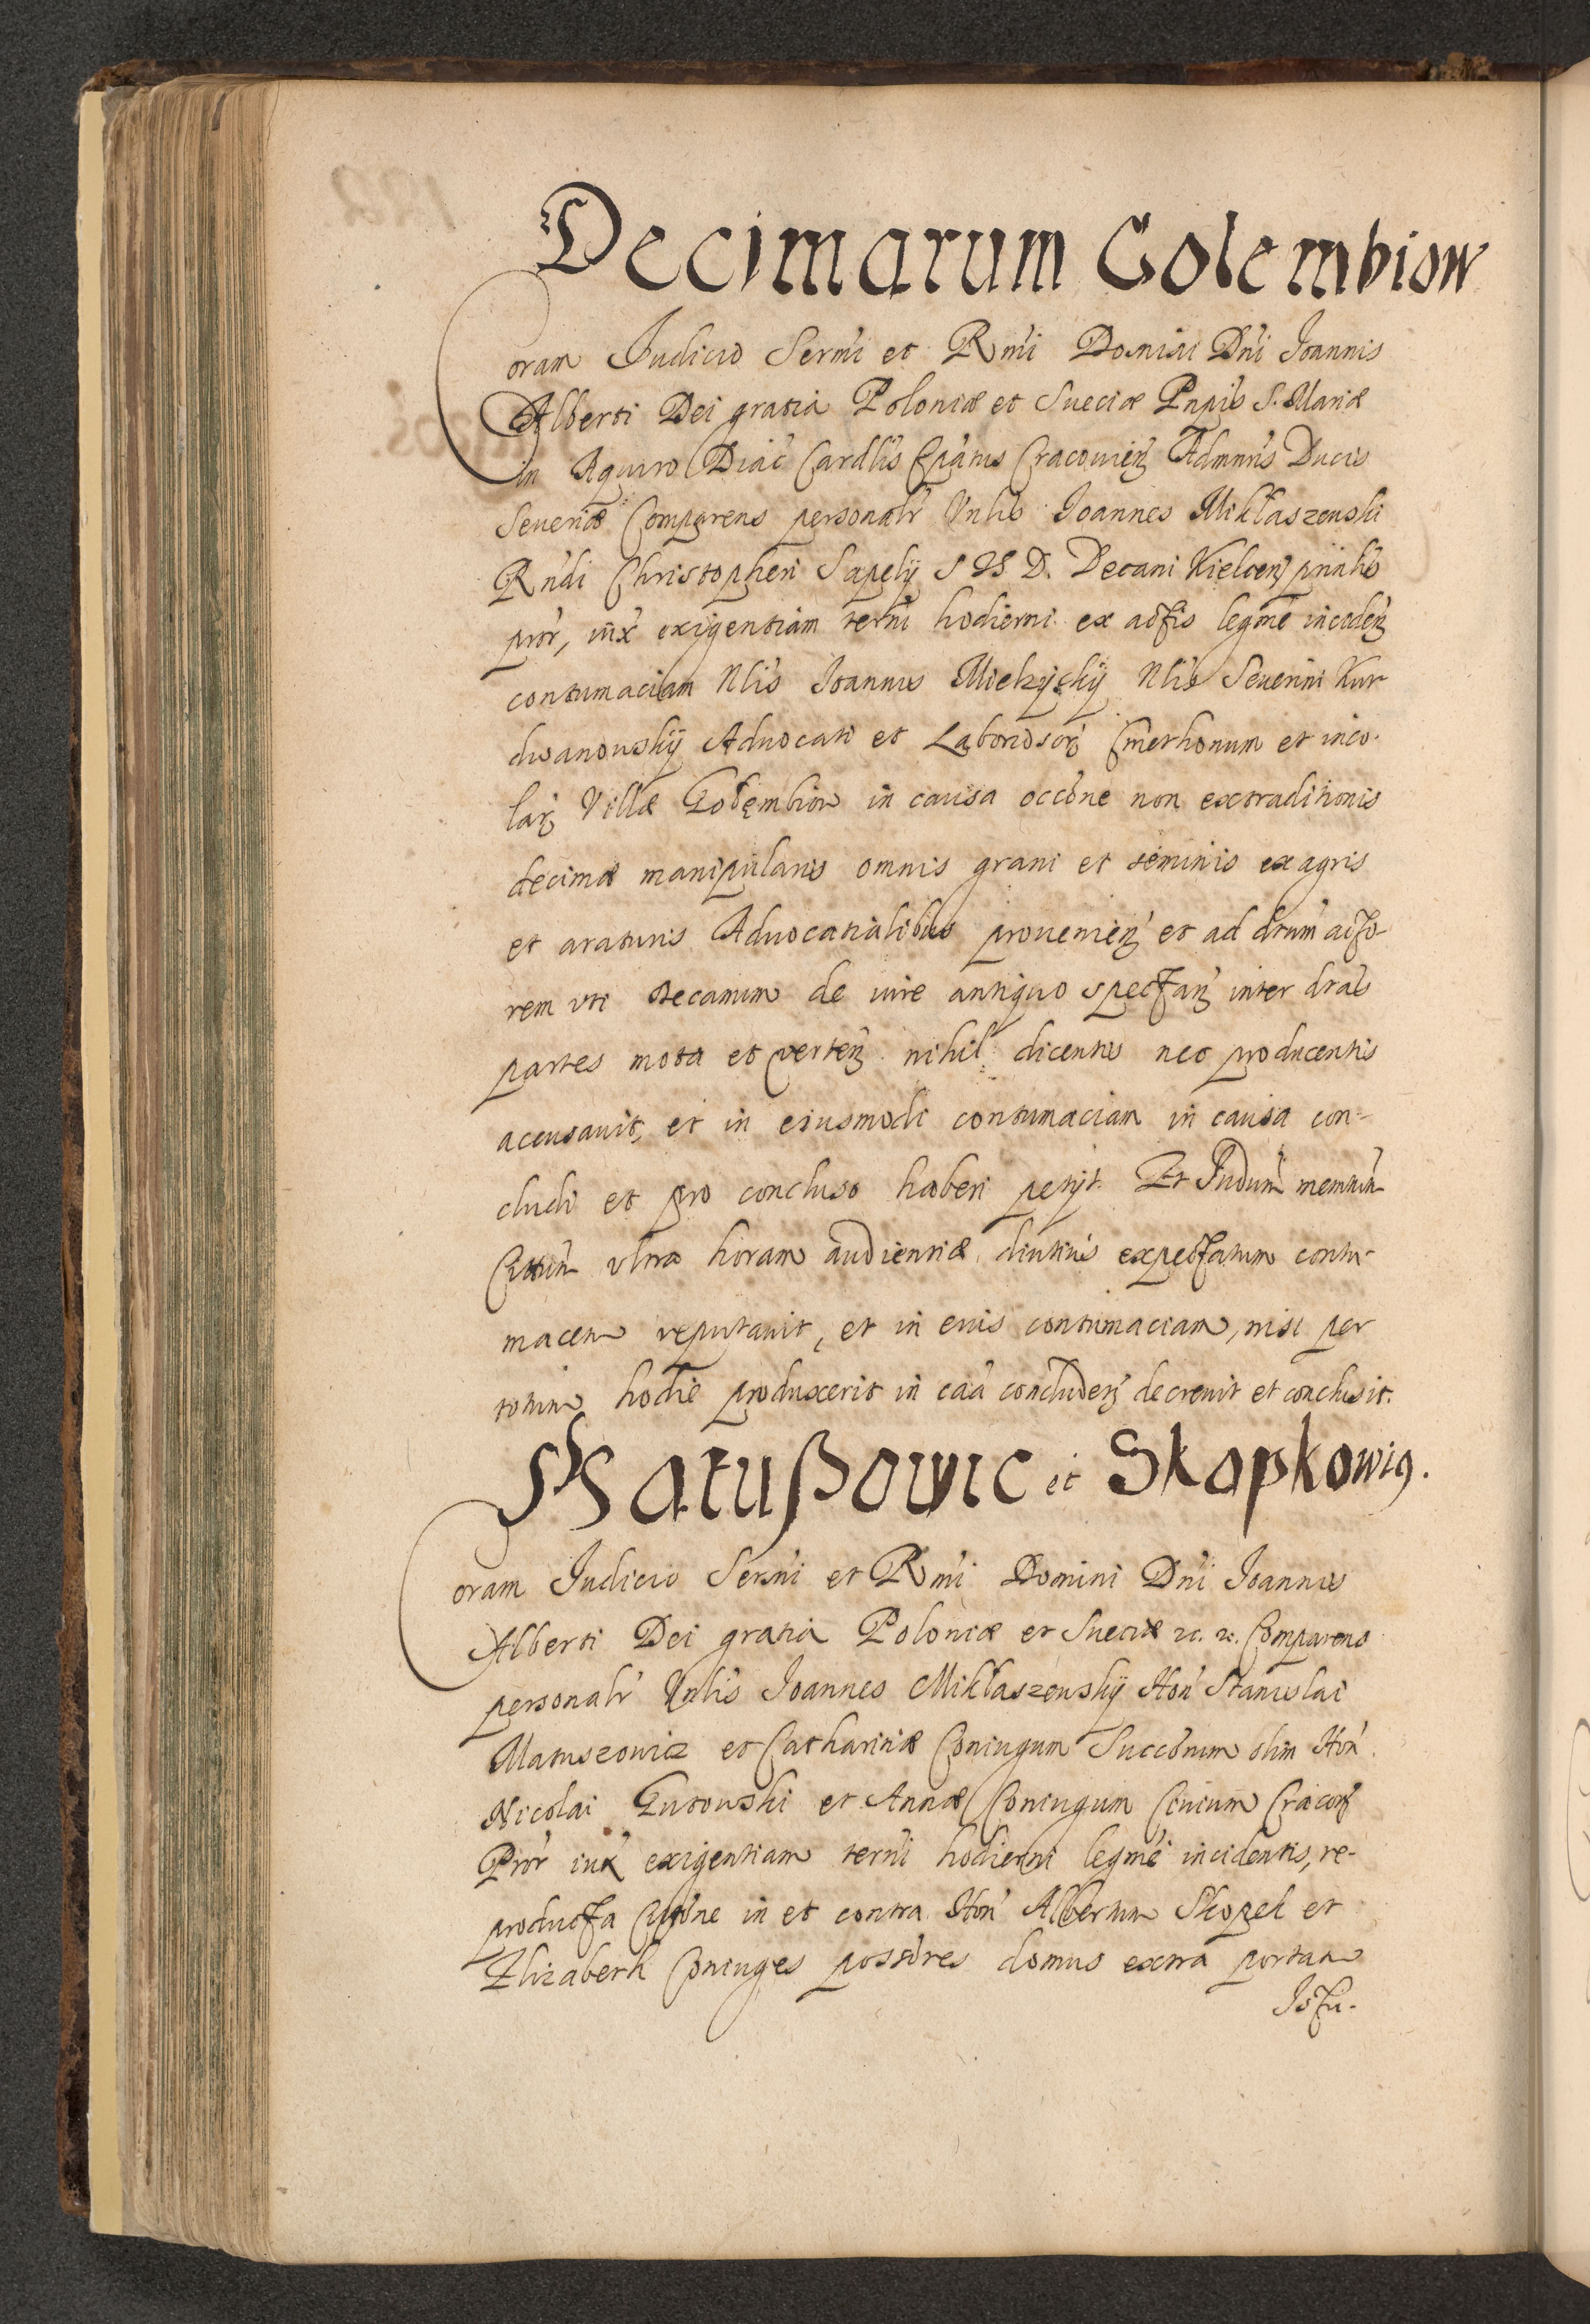 Decimarum Golembiow
Coram Judicio Sermi et Rmi Domini Dni Joannis
Alberti Dei gratia Poloniæ et Sueciæ Pnpis S. Mariæ
in Aquiro Diac Cardlis Epatus Cracouien Admnris Ducis
Seueriæ Comparens personalr Vnlis Joannes Miklaszewski
Rndi Christopheri Sapelij J V D. Decani Kielcen prinalis
pror, iux exigentiam termi hodierni ex actis legme inciden
contumaciam Nlis Joannis Mielzijckij Nlis Seuerini Kur
dwanowskij Aduocati et Laboriosor Cmethonum et inco-
lar Villæ Golembiow in causa occōne non extraditionis
decimæ manipularis omnis grani et seminis ex agris
et araturis Aduocatialibus prouenien et ad dictum acto-
rem vti decanum de iure antiquo spectan inter dictas
partes mota et verten nihil dicentis nec producentis
accusauit, et in eiusmodi contumaciam in causa con-
cludi et pro concluso haberi petijt. Et Judum memtum
Cittum vltra horam audientiæ diutius expectatum contu-
macem reputauit, et in eius contumaciam, nisi per
totum hodie produxerit in caa concluden decreuit et conclusit.
Matußowic et Skopkowig.
Coram Judicio Sermi et Rmi Domini Dni Joannis
Alberti Dei gratia Poloniæ et Sueciæ &c. &c. Comparens
personalr Vnlis Joannes Miklaszewskij Hon Stanislai
Matuszowicz et Catharinæ Coniugum Succōrum olim Hon
Nicolai Gutowski et Annæ Coniugum Ciuium Cracon
Pror iux exigentiam termi hodierni legme incidentis, re-
producta Citōne in et contra Hon Albertum Skopek et
Elizabeth Coniuges possōres domus extra portam
Istu-